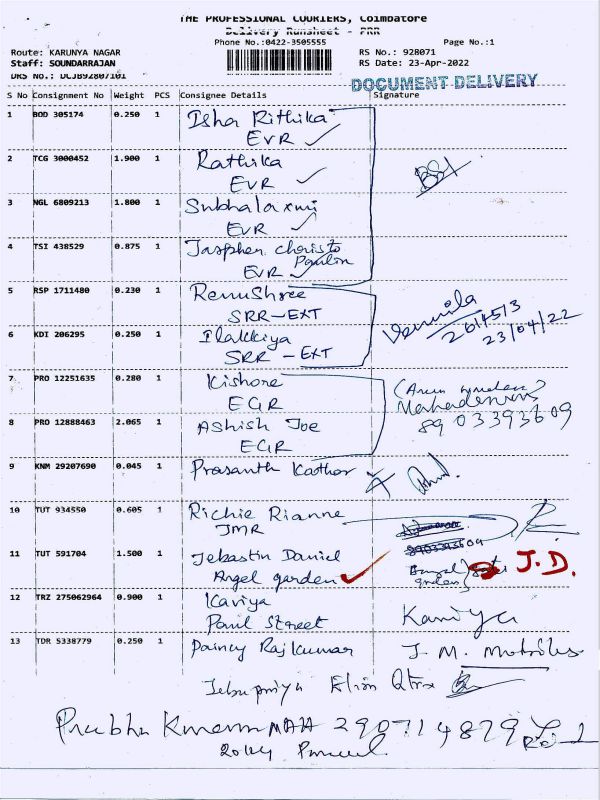 THE PROFESSIONAL COURIERS, Coimbatore
Delivery Runsheet - PRR
Phone No.:0422-3505555 Page No.:1
Route: KARUNYA NAGAR RS No.: 928071
Staff: SOUNDARRAJAN RS Date: 23-Apr-2022
DRS No.: DCJB92807101
DOCUMENT DELIVERY
S No Consignment No Weight PCS Consignee Details Signature
1 BOD 305174 0.250 1 Isha Rithika
EVR
2 TCG 3000452 1.900 1 Rathika
EVR
3 NGL 6809213 1.800 1 Subhalaxmi
EVR
4 TSI 438529 0.875 1 Jaspher Christo
EVR
5 RSP 1711480 0.230 1 RenuShree
SRR-EXT
Vennila
23/04/22
6 KDI 206295 0.250 1 Ilakkiya
SRR-EXT
7 PRO 12251635 0.280 1 Kishore
EGR
8 PRO 12888463 2.065 1 Ashish Joe
EGR
8903393609
9 KNM 29207690 0.045 1 Prasanth
10 TUT 934550 0.605 1 Richie Rianne
JMR
11 TUT 591704 1.500 1 Jebastin Daniel
Angel garden J.D.
12 TRZ 275062964 0.900 1 Kaviya
Paul Street Kaviya
13 TDR 5338779 0.250 1 Daincy Rajkumar J.M.
Jebupriya Elim Qtrs
Prabhu MAA 290714879